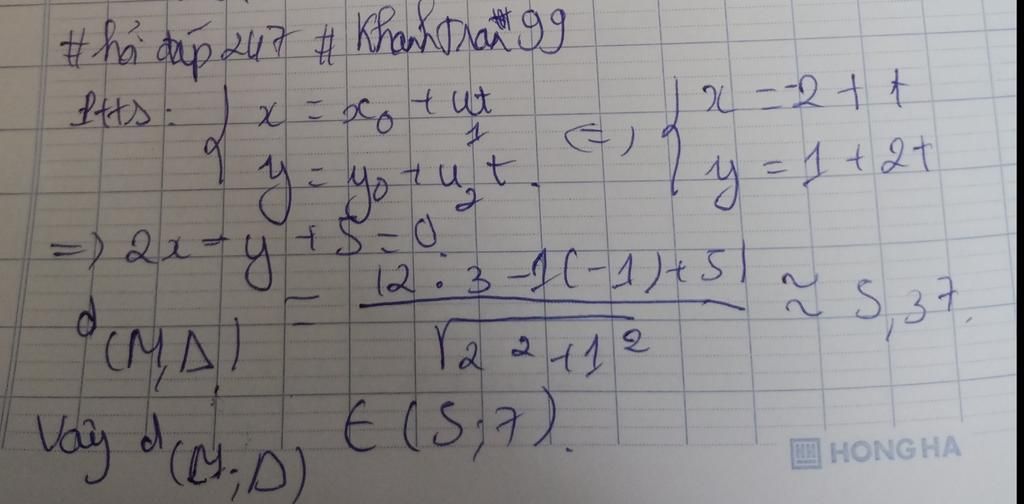 #hỏi đáp 247 # Khanhtran99
Ptts: { x = x₀ + u₁t <=> { x = -2 + t
y = y₀ + u₂t. y = 1 + 2t
=) 2x - y + 5 = 0.
d(M,Δ) = |2 . 3 - 1(-1) + 5| / √2² + 1² ≈ 5,37.
Vậy d(M;Δ) ∈ (5;7).
HONG HA